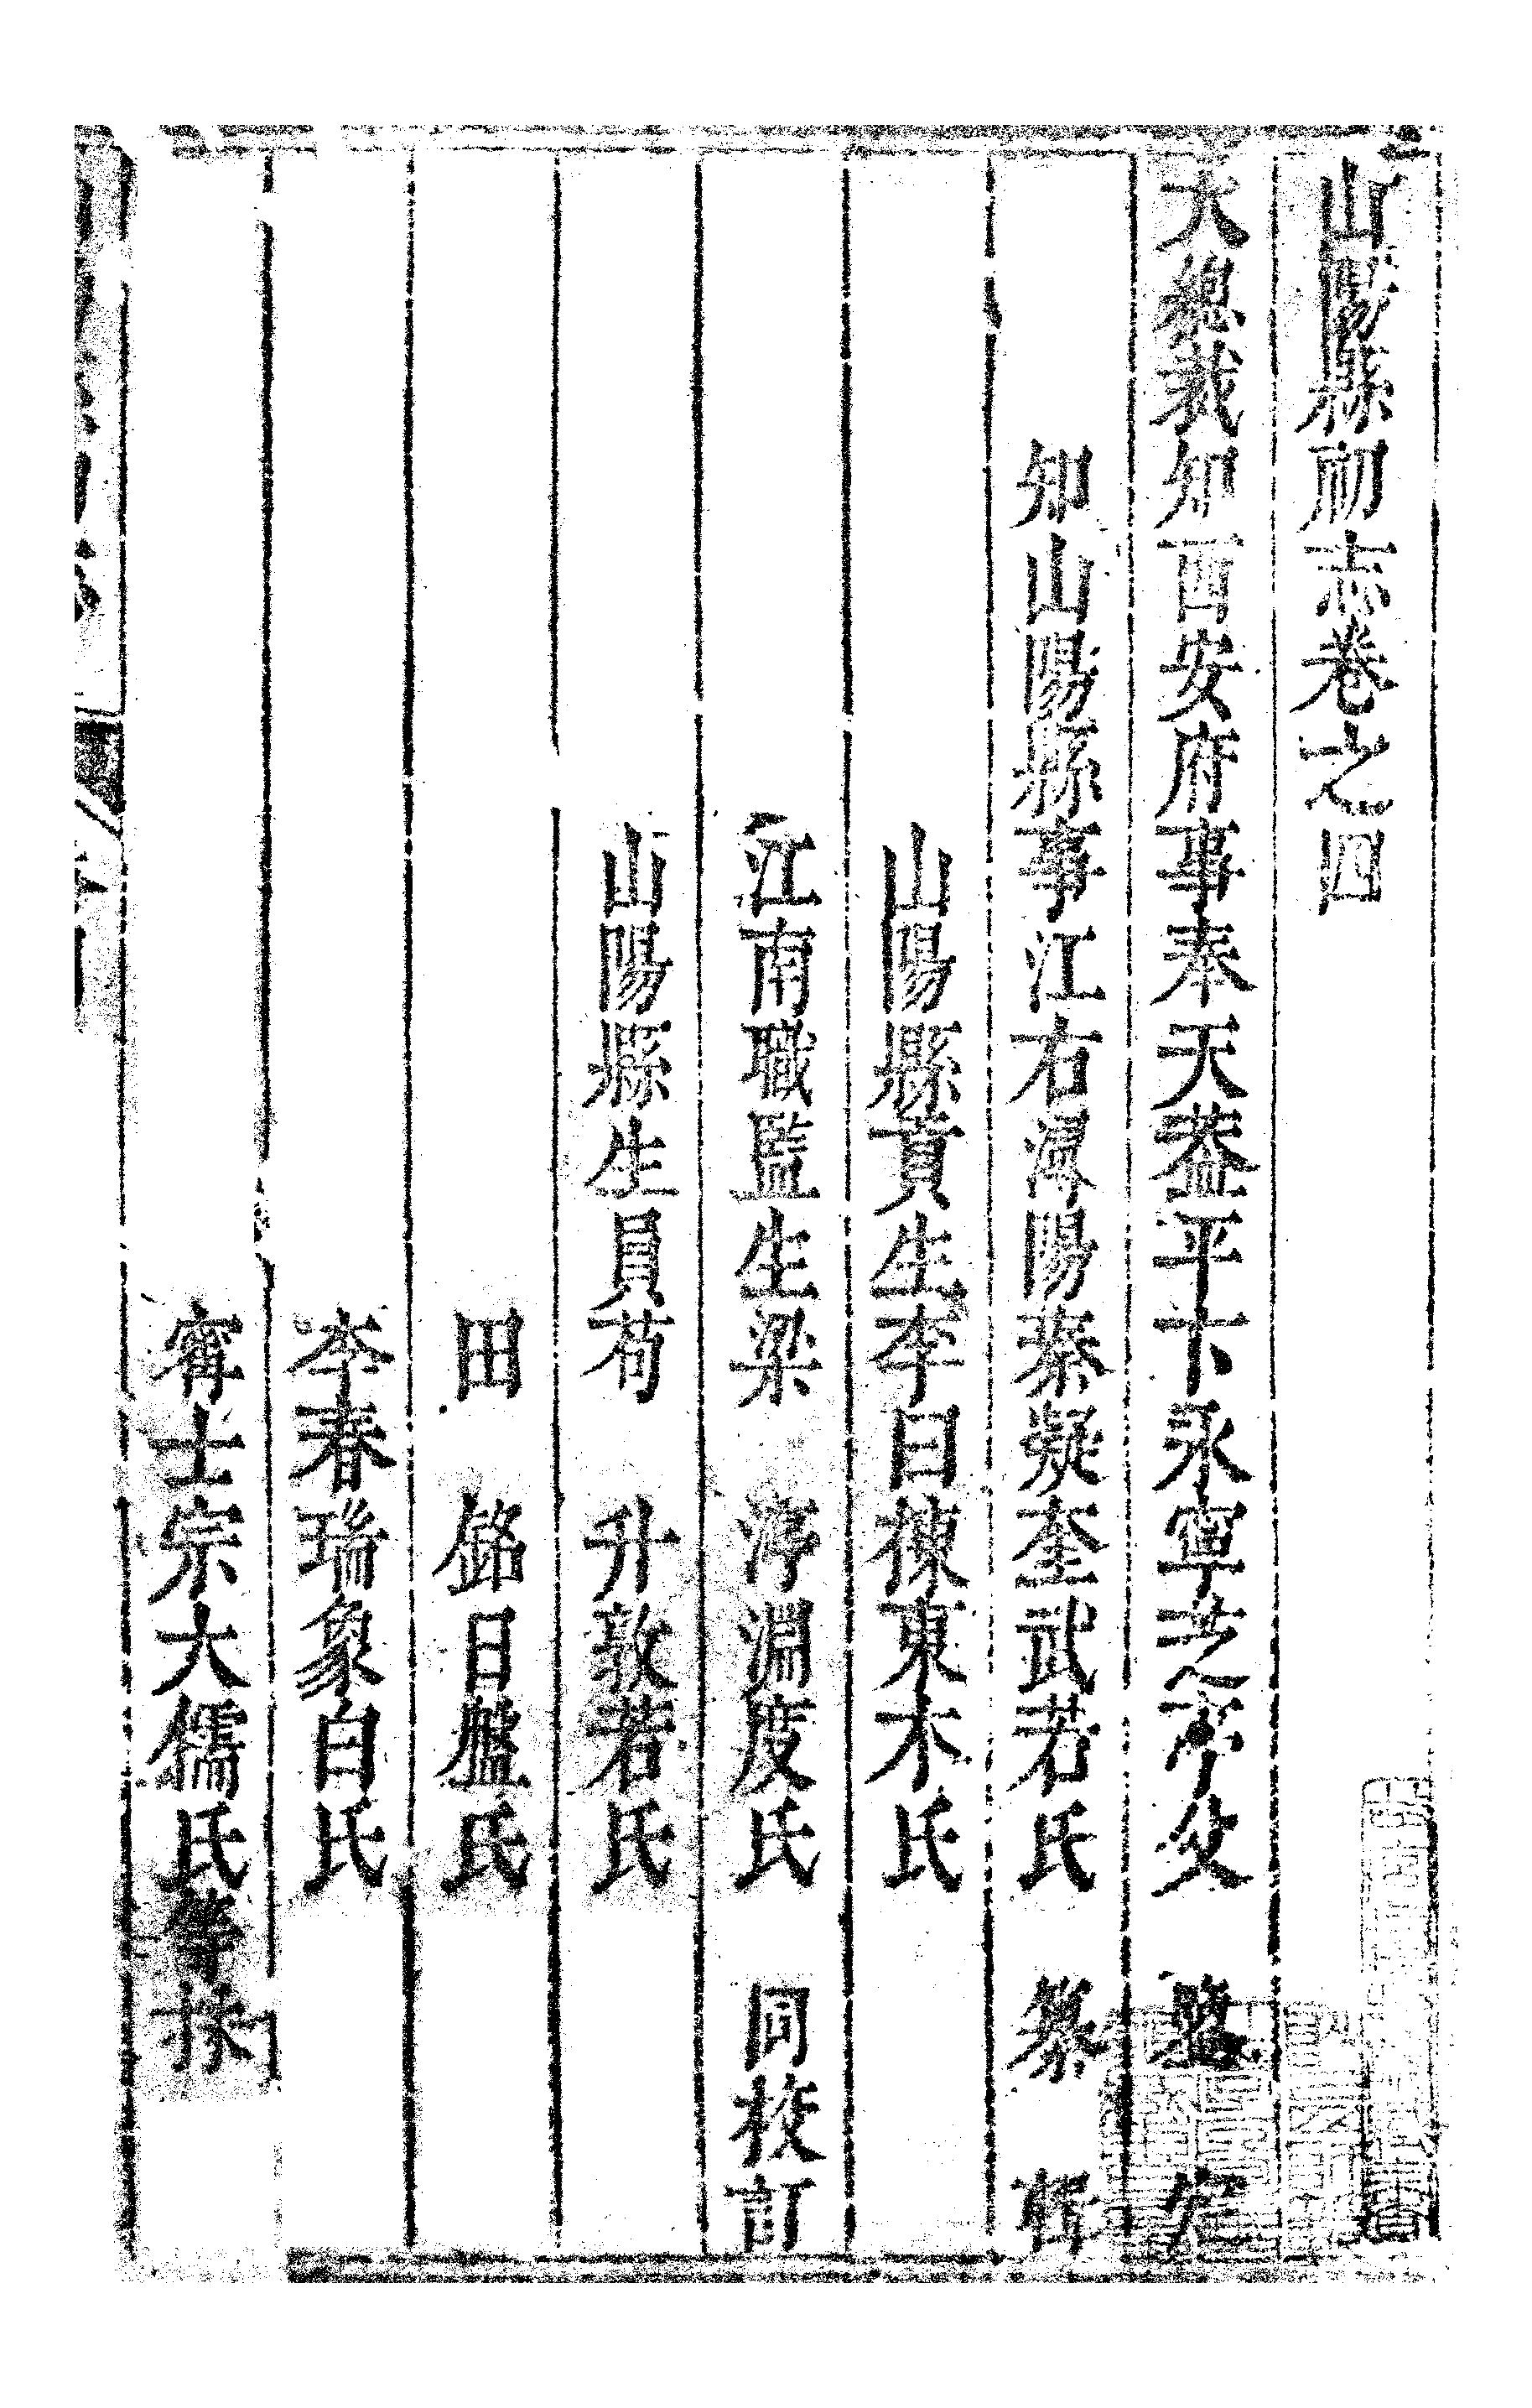 山陽縣初志卷之四
大總裁知西安府事奉天葢平卞永寧芝亭父 鑒 定
知山陽縣事江右潯陽秦凝奎武若氏 纂 輯
山陽縣貢生李曰棟東木氏
江南職監生梁 渟淵度氏 同校訂
山陽縣生員苟 升敦若氏
田 銘日盤氏
李春瑞象自氏
甯士宗大儒氏等採